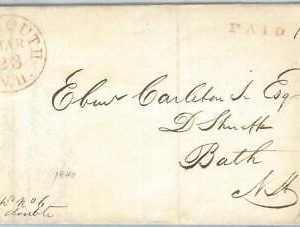 OUTH
MAR
23
N.H.
PAID
Ebenr Carleton Jr Esq
D Sheriff
Bath
N H
1840
double